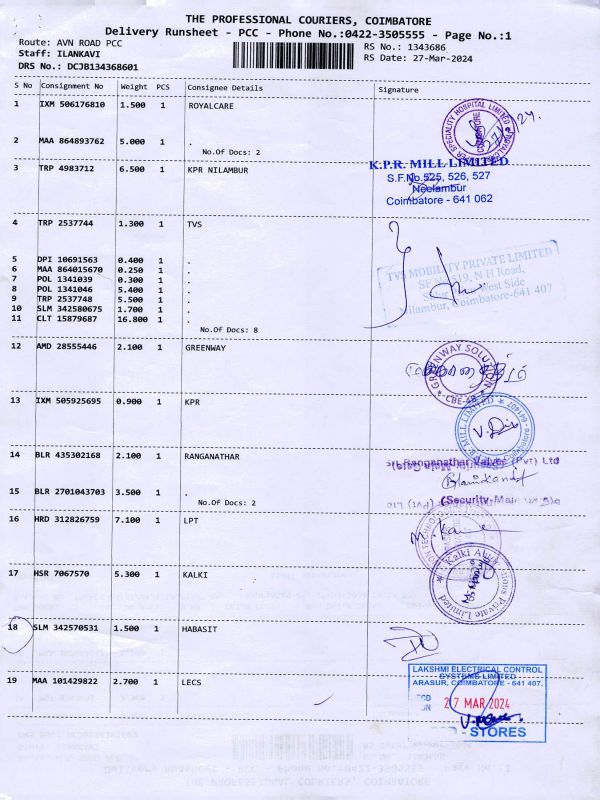 THE PROFESSIONAL COURIERS, COIMBATORE
Delivery Runsheet - PCC - Phone No.:0422-3505555 - Page No.:1
Route: AVN ROAD PCC
RS No.: 1343686
Staff: ILANKAVI
RS Date: 27-Mar-2024
DRS No.: DCJB134368601
S No Consignment No Weight PCS Consignee Details Signature
1 IXM 506176810 1.500 1 ROYALCARE
2 MAA 864893762 5.000 1 .
No.Of Docs: 2
3 TRP 4983712 6.500 1 KPR NILAMBUR
K.P.R. MILL LIMITED
S.F.No.525, 526, 527
Neelambur
Coimbatore - 641 062
4 TRP 2537744 1.300 1 TVS
TVS MOBILITY PRIVATE LIMITED
SF No.519, N H Road,
West Side
Nilambur, Coimbatore-641 407
5 DPI 10691563 0.400 1 .
6 MAA 864015670 0.250 1 .
7 POL 1341039 0.300 1 .
8 POL 1341046 5.400 1 .
9 TRP 2537748 5.500 1 .
10 SLM 342580675 1.700 1 .
11 CLT 15879687 16.800 1 .
No.Of Docs: 8
12 AMD 28555446 2.100 1 GREENWAY
GREENWAY SOLUTION
CBE-48
13 IXM 505925695 0.900 1 KPR
MILL LIMITED
V. Dis
14 BLR 435302168 2.100 1 RANGANATHAR
Sri Ranganathar Valves (Pvt) Ltd
15 BLR 2701043703 3.500 1 .
No.Of Docs: 2
(Security-Main
16 HRD 312826759 7.100 1 LPT
17 HSR 7067570 5.300 1 KALKI
Kalki
Private Limited
18 SLM 342570531 1.500 1 HABASIT
19 MAA 101429822 2.700 1 LECS
LAKSHMI ELECTRICAL CONTROL
SYSTEMS LIMITED
ARASUR, COIMBATORE - 641 407.
27 MAR 2024
STORES